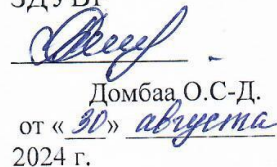 ЗДУВР
Домбаа О.С-Д.
от «30» августа
2024 г.